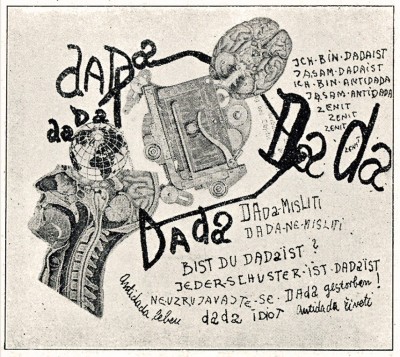 dADa
daDa
JCH-BIN-DADAIST
JA, SAM-DADAIST
ICH-BIN-ANTIDADA
JA, SAM-ANTIDADA
ZENIT
ZENIT
ZENIT
Dada
ZENIT
DAda
DAda-MISLITI
DADA-NE-MISLITI
BIST DU DADAIST ?
JEDER-SCHUSTER-IST-DADAIST
NEUZRUJAVAJTE-SE-DAda gestorben!
Antidada leben
dada iDiOT
Antidada živeti